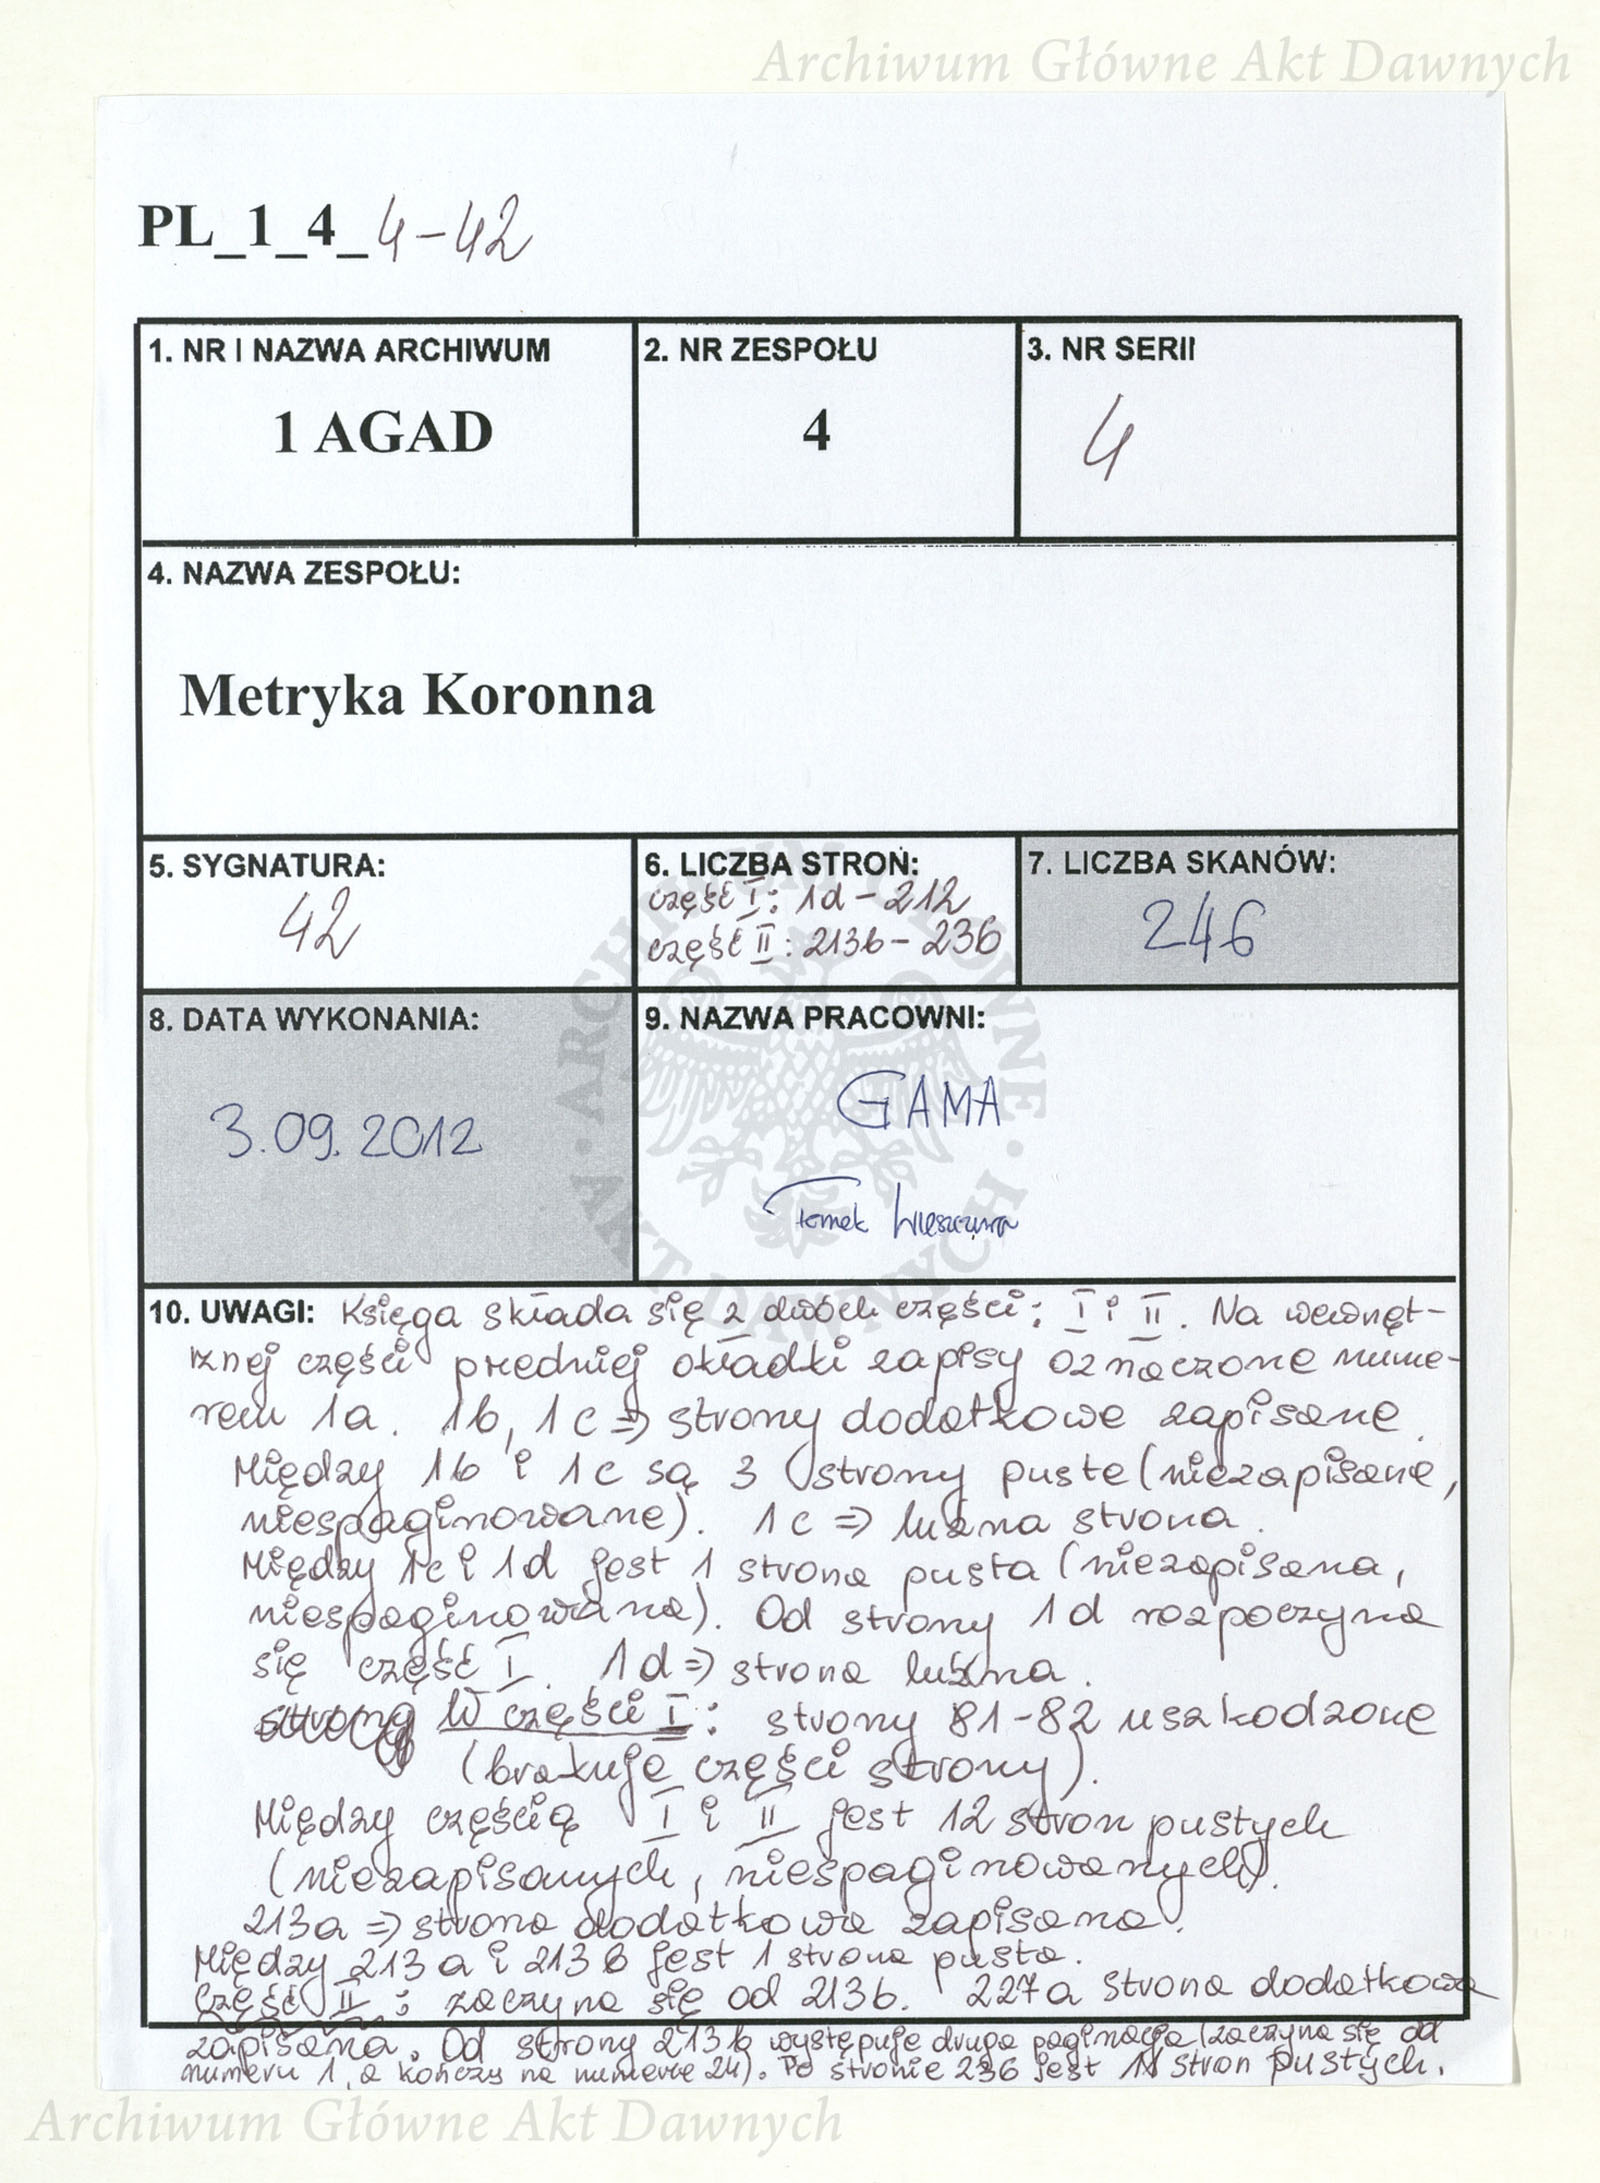 Archiwum Główne Akt Dawnych
PL_1_4_4-42
1. NR I NAZWA ARCHIWUM
1 AGAD
2. NR ZESPOŁU
4
3. NR SERII
4
4. NAZWA ZESPOŁU:
Metryka Koronna
5. SYGNATURA:
42
6. LICZBA STRON:
część I: 1d-212
część II: 213b-236
7. LICZBA SKANÓW:
246
8. DATA WYKONANIA:
3.09.2012
9. NAZWA PRACOWNI:
GAMA
Tomek
ARCHIWUM GŁÓWNE · AKT DAWNYCH ·
10. UWAGI: Księga składa się z dwóch części: I i II. Na wewnęt-
rznej części przedniej okładki zapisy oznaczone nume-
rem 1a. 1b, 1c => strony dodatkowe zapisane.
Między 1b i 1c są 3 strony puste (niezapisane,
niespaginowane). 1c => luźna strona.
Między 1c i 1d jest 1 strona pusta (niezapisana,
niespaginowana). Od strony 1d rozpoczyna
się część I. 1d => strona luźna.
W części I: strony 81-82 uszkodzone
(brakuje części strony).
Między częścią I i II jest 12 stron pustych
(niezapisanych, niespaginowanych).
213a => strona dodatkowa zapisana.
Między 213a i 213b jest 1 strona pusta.
Część II: zaczyna się od 213b. 227a strona dodatkowa
zapisana. Od strony 213b występuje druga paginacja (zaczyna się od
numeru 1, a kończy na numerze 24). Po stronie 236 jest 11 stron pustych.
Archiwum Główne Akt Dawnych